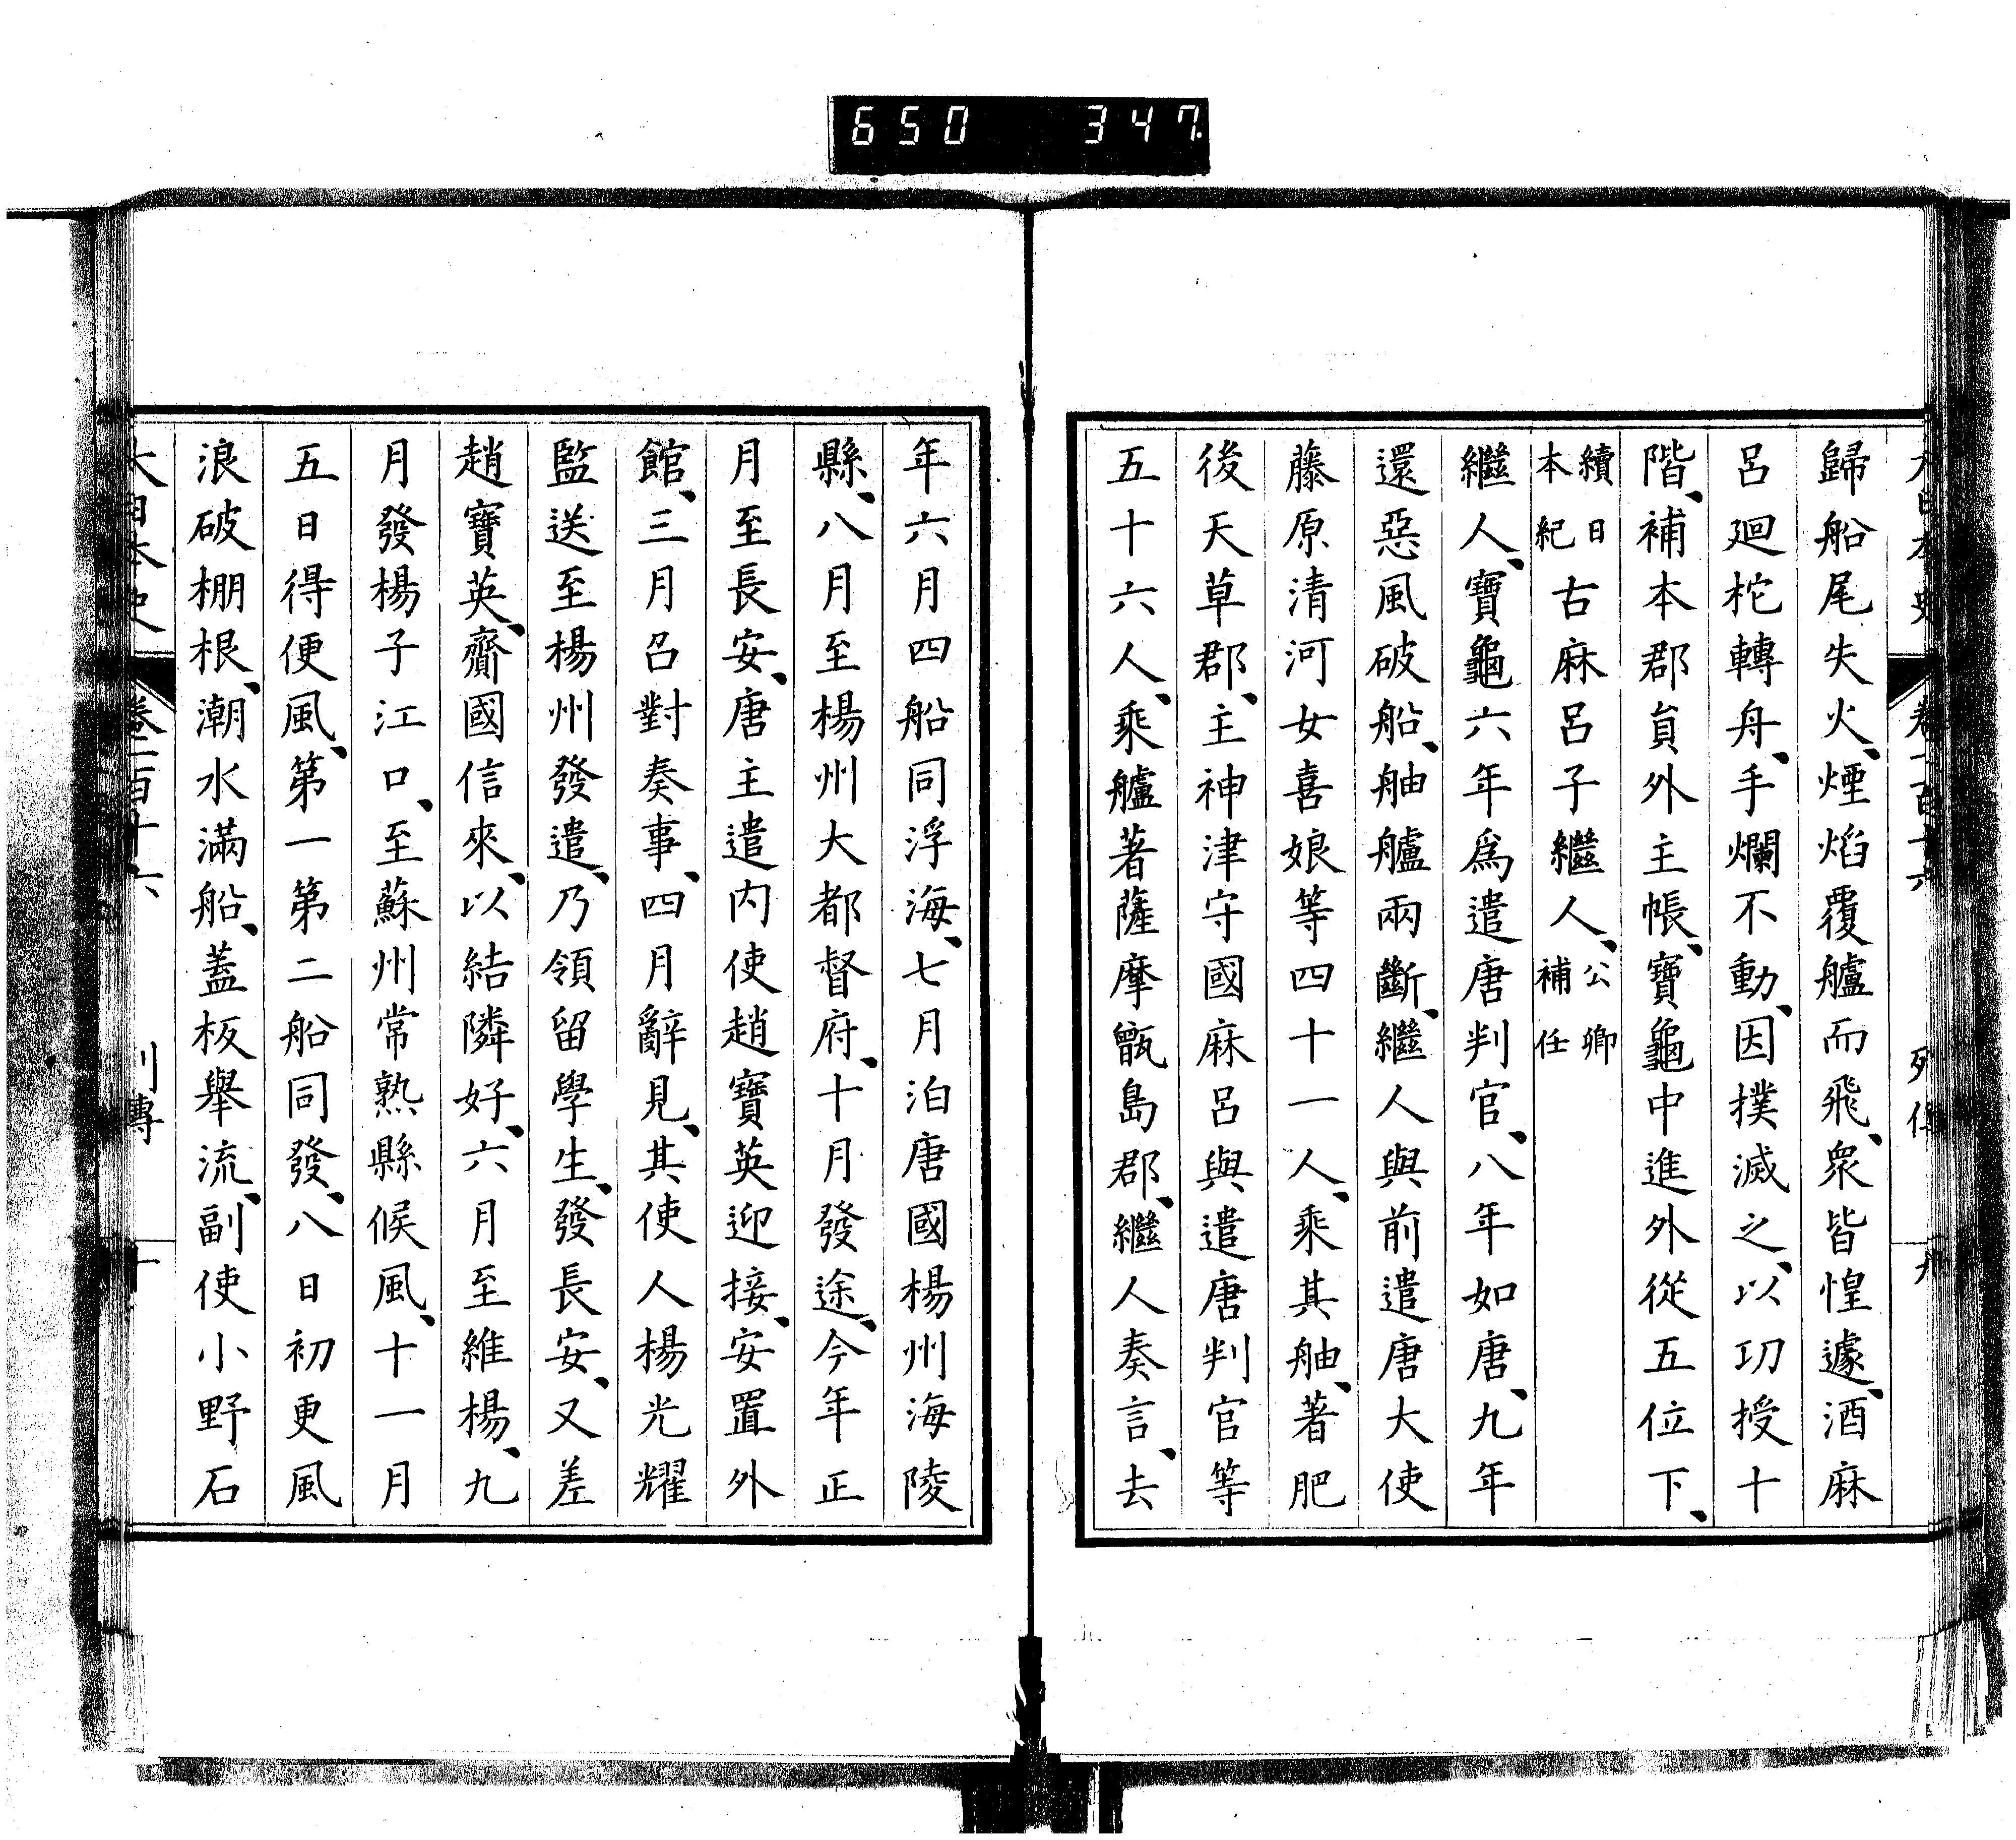 650 347
歸船尾失火、煙焰覆艫而飛、衆皆惶遽、酒麻
呂廻柁轉舟、手爛不動、因撲滅之、以功授十
階、補本郡員外主帳、寶龜中進外從五位下、
續日本紀 古麻呂子繼人、公卿補任
繼人、寶龜六年爲遣唐判官、八年如唐、九年
還惡風破船、舳艫兩斷、繼人與前遣唐大使
藤原清河女喜娘等四十一人、乘其舳、著肥
後天草郡、主神津守國麻呂與遣唐判官等
五十六人、乘艫著薩摩甑島郡、繼人奏言、去
年六月四船同浮海、七月泊唐國楊州海陵
縣、八月至楊州大都督府、十月發途、今年正
月至長安、唐主遣内使趙寶英迎接、安置外
館、三月召對奏事、四月辭見、其使人楊光耀
監送至楊州發遣、乃領留學生、發長安、又差
趙寶英、齎國信來、以結隣好、六月至維楊、九
月發楊子江口、至蘇州常熟縣候風、十一月
五日得便風、第一第二船同發、八日初更風
浪破棚根、潮水滿船、蓋板舉流、副使小野石
大日本史 卷一百十六 列傳 十